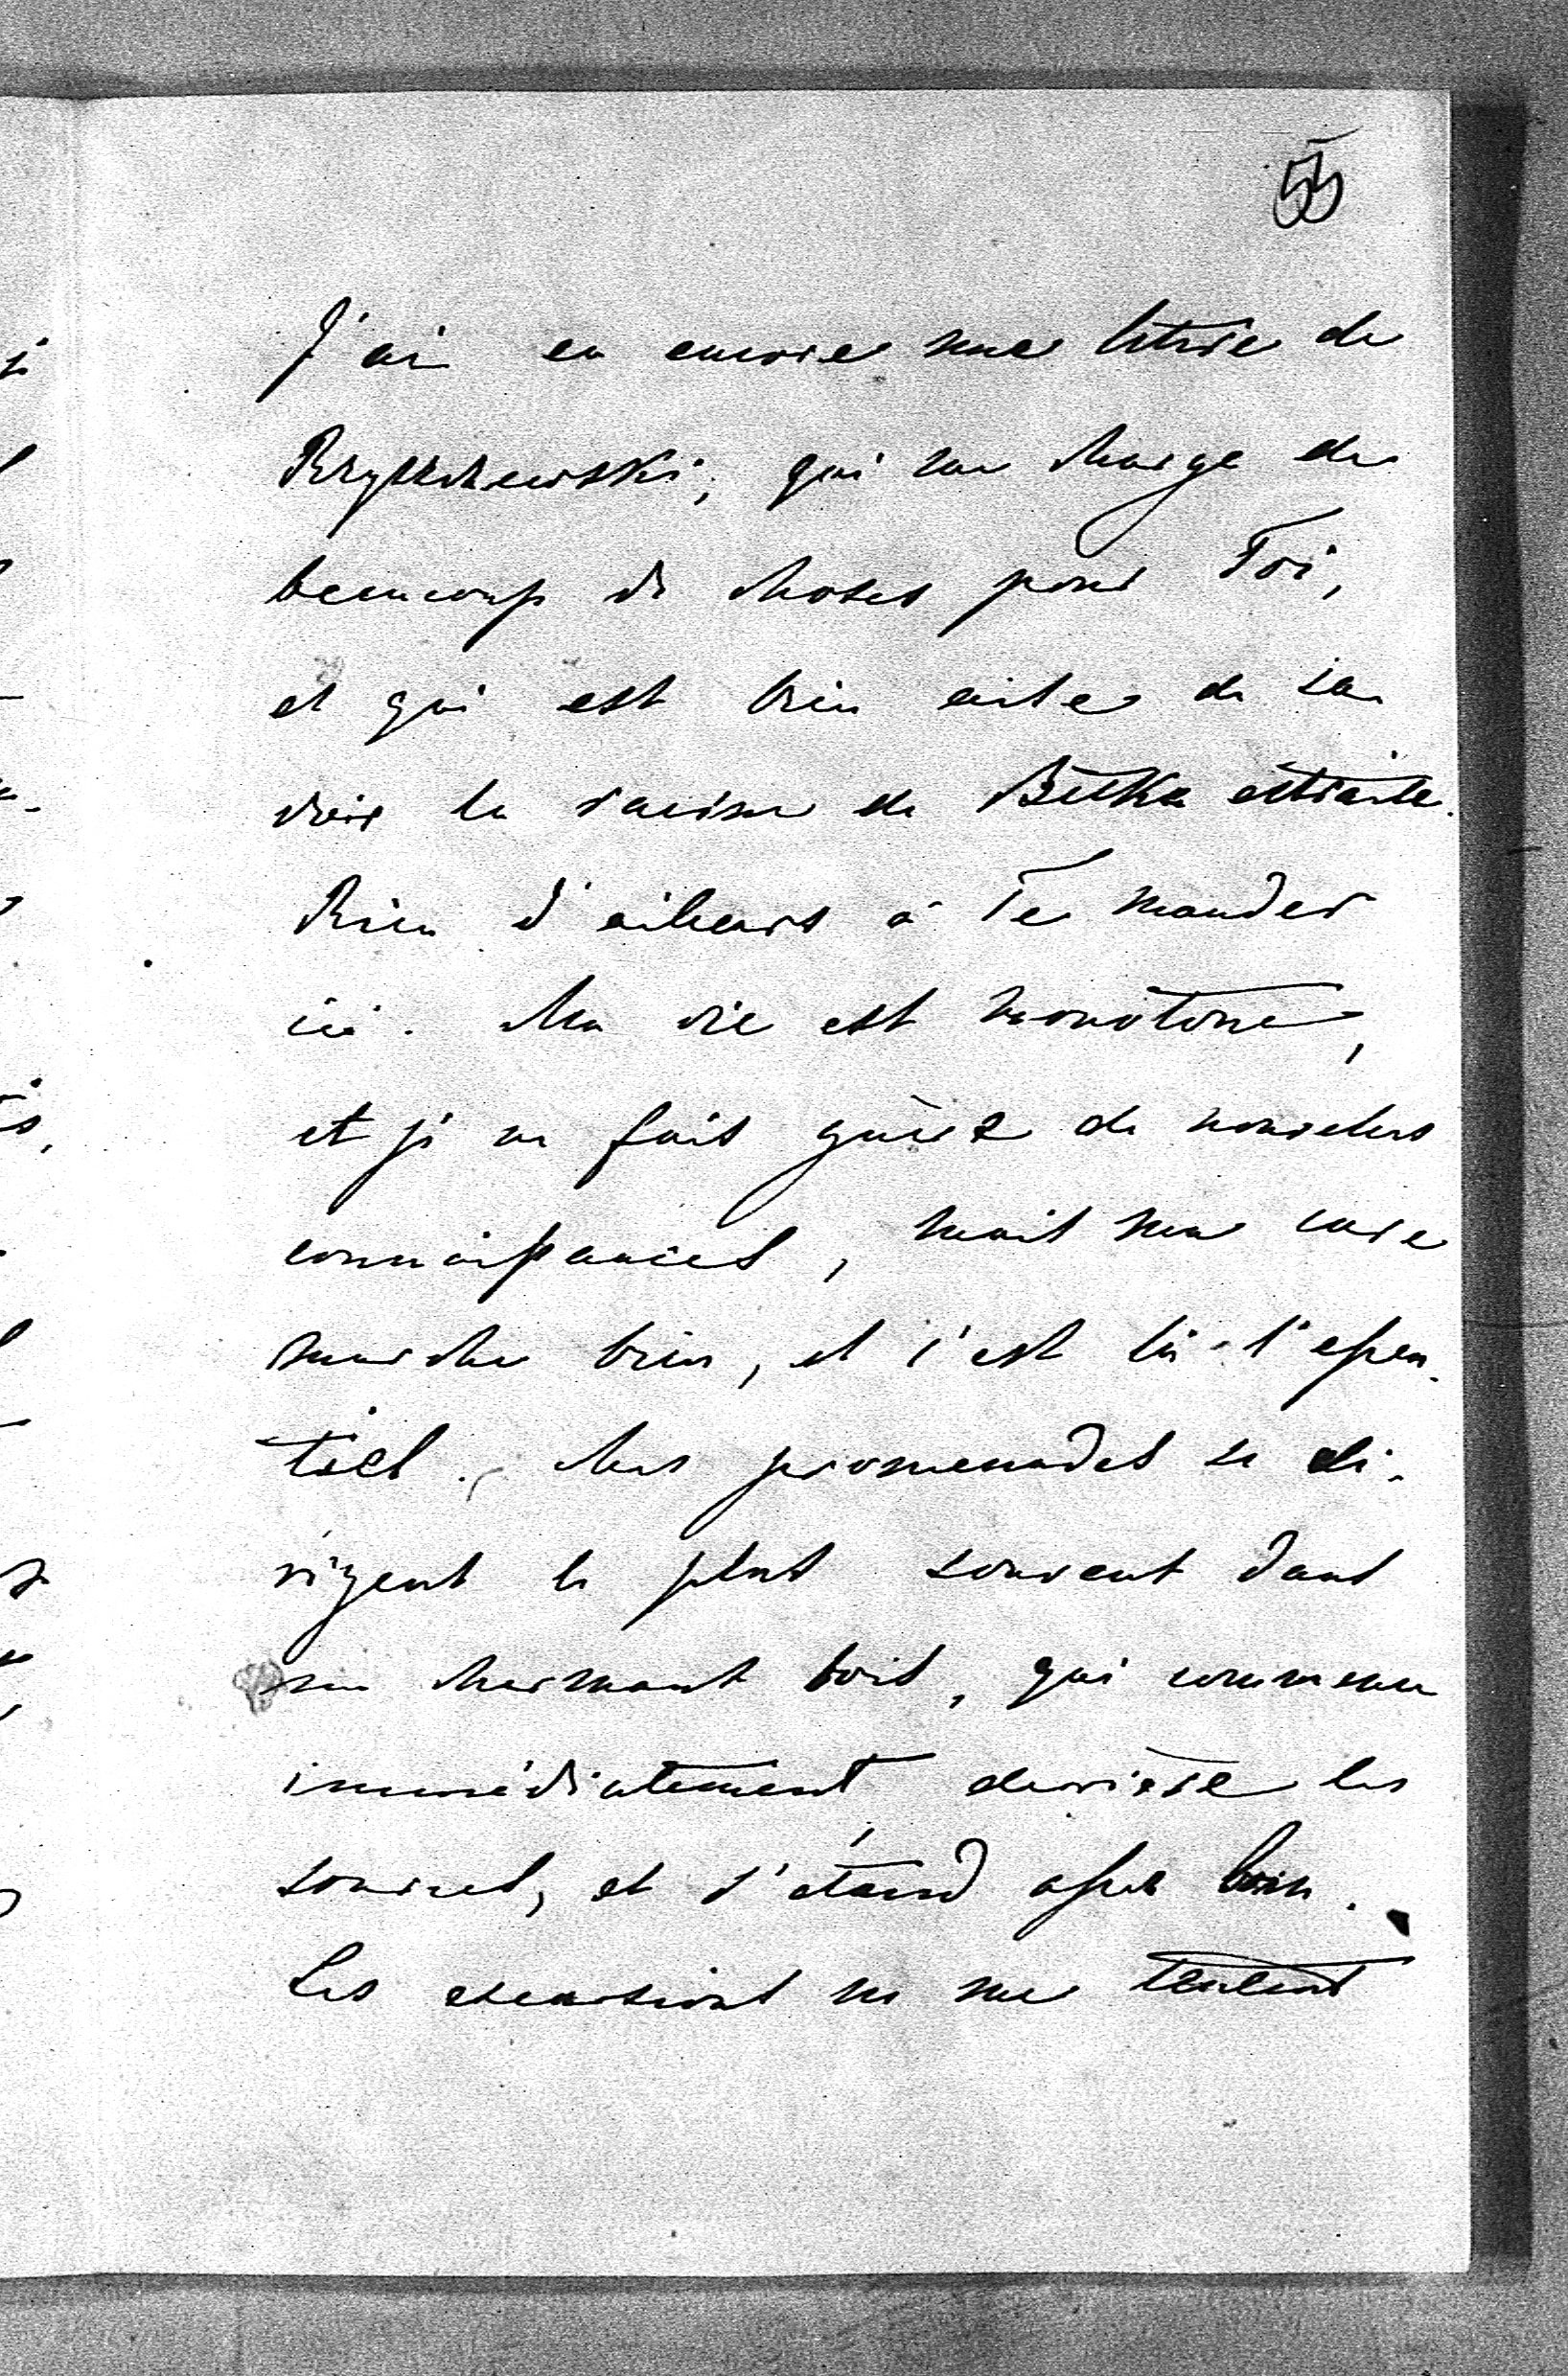 55
J'ai eu encore une lettre de
qui me charge de
beaucoup de choses pour Toi,
et qui est bien aise de sa-
voir la racine de
Rien d'ailleurs à Te mander
ici. Ma vie est monotone,
et je ne fais guère de nouvelles
connaissances, mais ma cure
marche bien, et c'est là l'essen-
tiel. Mes promenades se di-
rigent le plus souvent dans
un charmant bois, qui commence
immédiatement derrière les
sources, et s'étend assez loin.
Les excursions ne me tentent